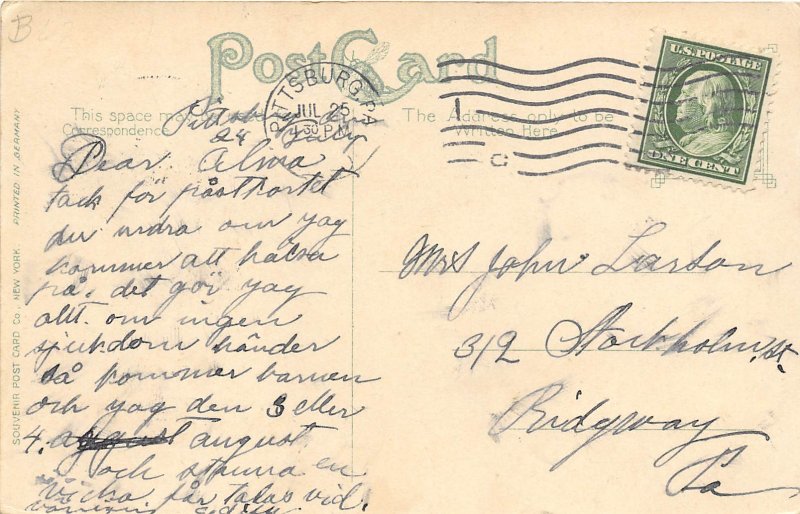 B
Post Card
This space may
Correspondence
The Address only to be
Written Here
PITTSBURG, PA.
JUL 25
30 P.M.
U.S. POSTAGE
ONE CENT
SOUVENIR POST CARD CO., NEW YORK PRINTED IN GERMANY
24 July
Dear Alma
tack för påstkortet
du undra om yag
kommer att hälsa
på. det gör yag
allt. om ingen
sjukdom händer
så kommer barnen
och yag den 3 eller
4. august august
och stanna en
vicka får talas vid.
Mrs John Larson
312 Stockholm st.
Ridgway
Pa